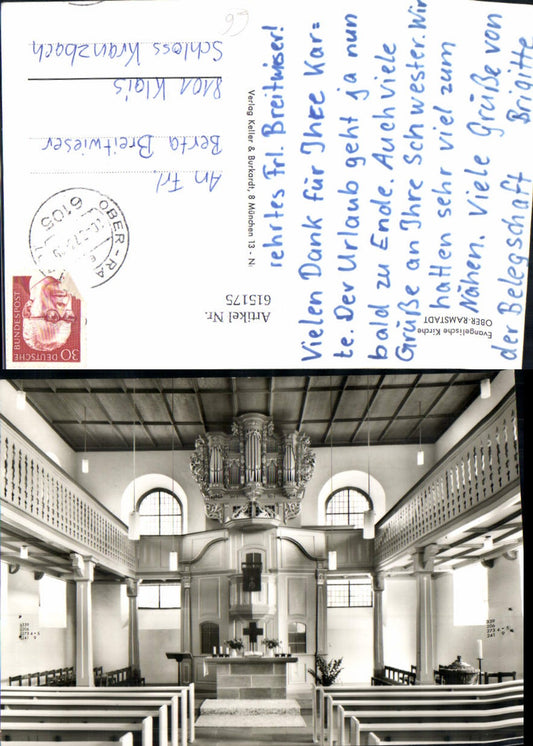 rehrtes Frl. Breitwieser!
Vielen Dank für Ihre Kar=
te. Der Urlaub geht ja nun
bald zu Ende. Auch viele
Grüße an Ihre Schwester. Wir
hatten sehr viel zum
Nähen. Viele Grüße von
der Belegschaft Brigitte
An Frl.
Berta Breitwieser
8101 Klais
Schloss Kranzbach
Verlag Keller & Burkardt, 8 München 13 - N
Artikel Nr.
615175
Evangelische Kirche
OBER-RAMSTADT
6105
OBER-RA
DEUTSCHE BUNDESPOST
30